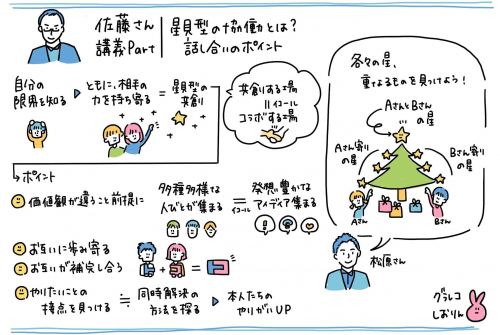 佐藤さん
講義Part
星見型の協働とは?
話し合いのポイント
自分の
限界を知る
ともに、相手の
力を持ち寄る
=
星見型の
共創
共創する場
イコール
コラボする場
各々の星、
重なるものを見つけよう!
AさんとBさん
の星
Aさん寄り
の星
Bさん寄り
の星
Aさん
Bさん
ポイント
価値観が違うこと前提に
多種多様な
人びとが集まる
=
イコール
発想豊かな
アイディア集まる
お互いに歩み寄る
お互いが補完し合う
+
=
やりたいことの
接点を見つける
≒
同時解決の
方法を探る
本人たちの
やりがいUP
松原さん
グラレコ
しおりん